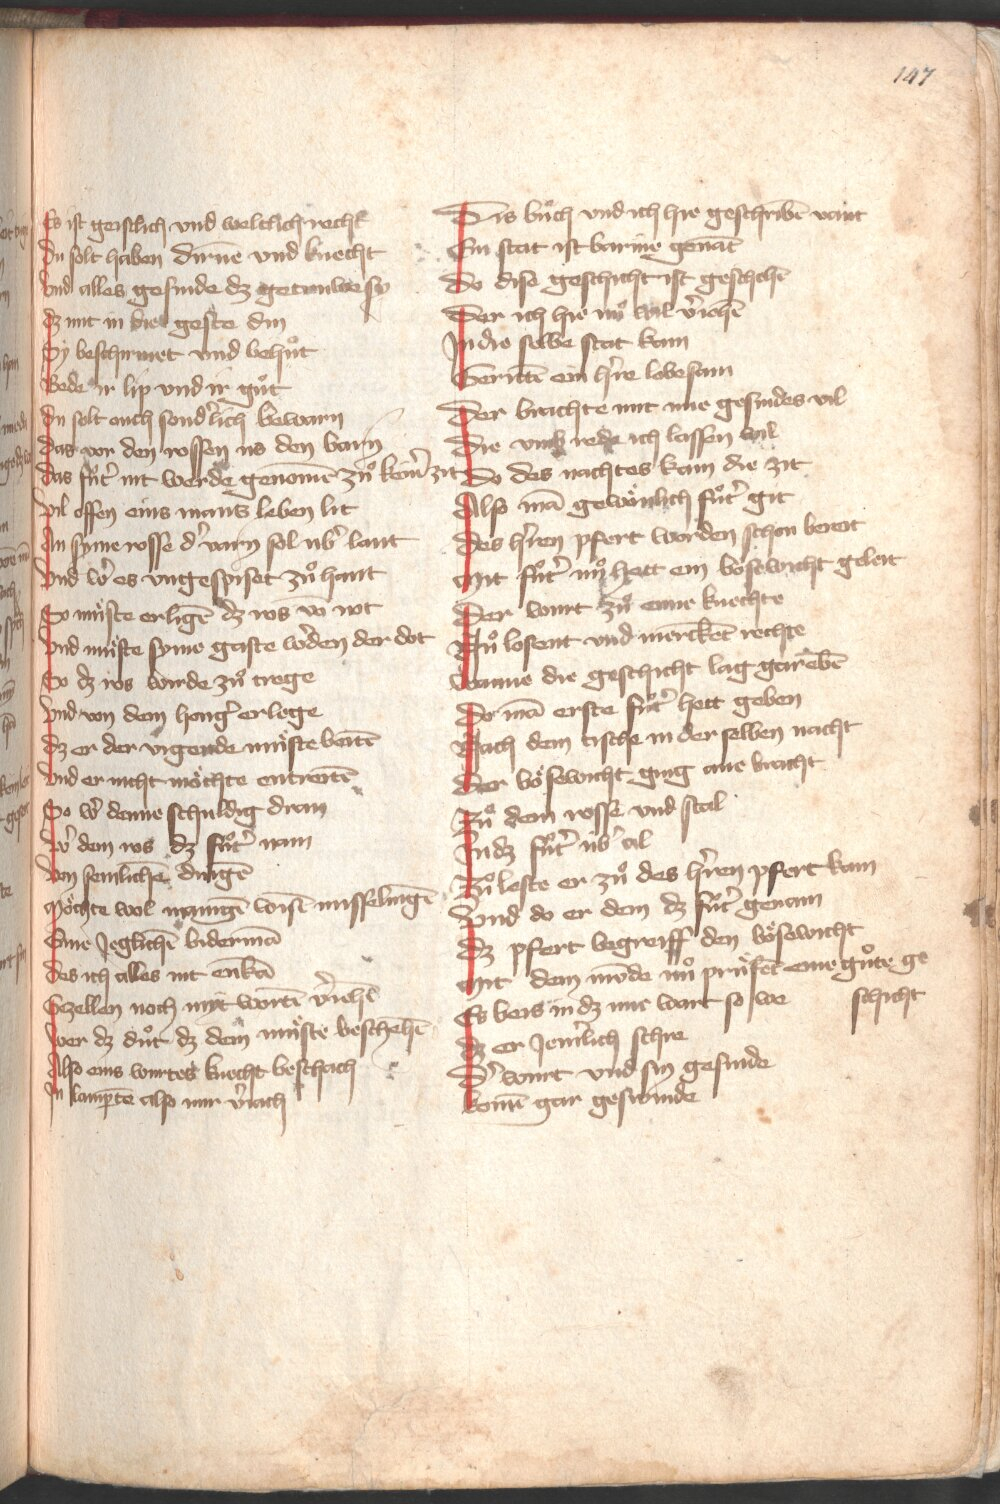 147
Es ist geistlich vnd weltlich recht
Du solt haben dirne vnd knecht
Vnd alles gesinde dz getruwe sy
Dz mit in die geste din
Sy beschirmet vnd behuͦt
Bede ir lip vnd ir guͦt
Du solt ouch sond'lich bewarn
Das von den rossen us den barn
Das fuͦt' nit werde genomē zuͦ kein' zit
Vil offen eins mans leben lit
An syme rosse d' varn sol vb' lant
Vnd w' es vngespiset zuͦ hant
So muͤste erligē dz ros vō not
Vnd muͤste syme gaste w'den der dot
So dz ros wurde zuͦ trege
Vnd von dem hong' erlege
Dz er der vigende muͤste beitē
Vnd er nicht moͤchte entreitē
So w' denne schuldig dran
W' dem ros dz fuͦt' nam
Von semlichē dingē
Moͤchte wol manigē wisē misselingē
Eime Jeglichē biderman̄
Des ich alles nit enkā
Gezellen noch mit wortē v'ieht
Wer dz duͦt dz dem muͤste beschehē
Also eins wurtes knecht beschach
In lamparte also mir v'iach
Dis buͦch vnd ich hie geschribē vant
Ein stat ist barme genāt
Do dise geschicht ist geschehē
Der ich hie nuͦ wil v'iehē
In die selbe stat kam
Gerittē ein h're lobesam
Der brachte mit ime gesindes vil
Die vmb rede ich lassen wil
Do des nachtes kam die zit
Also mā gewoͤnlich fuͦt' git
Des h'ren pfert worden schon bereit
Mit fuͦt' nuͦ hett ein boͤsewicht geleit
Der wurt zuͦ eime knechte
Nuͦ losent vnd merckēt rechte
Wanne die geschicht lag gar ebē
Do mā erste fuͦt' hett geben
Nach dem tische in der selben nacht
Der boͤsewicht ging ane bracht
Zuͦ dem rosse vnd stal
In dz fuͦt' vb' al
Zuͦ leste er zuͦ des h'ren pfert kam
Vnd do er dem dz fuͦt' genam
Dz pfert begreiff den boͤsewicht
Mit dem mvde nuͦ pruͤfet eine guͦte ge
schicht
Es beis in dz ime wart so we
Dz er Jem'lich schre
D' wurt vnd sin gesinde
Komē gar geswinde